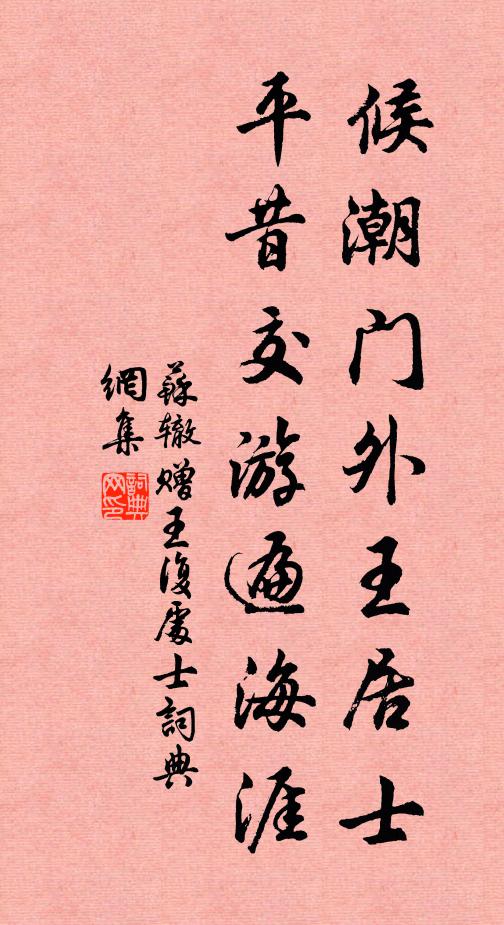 候潮门外王居士
平昔交游遍海涯
蘇辙赠王復處士詞典
網集
詞典网印